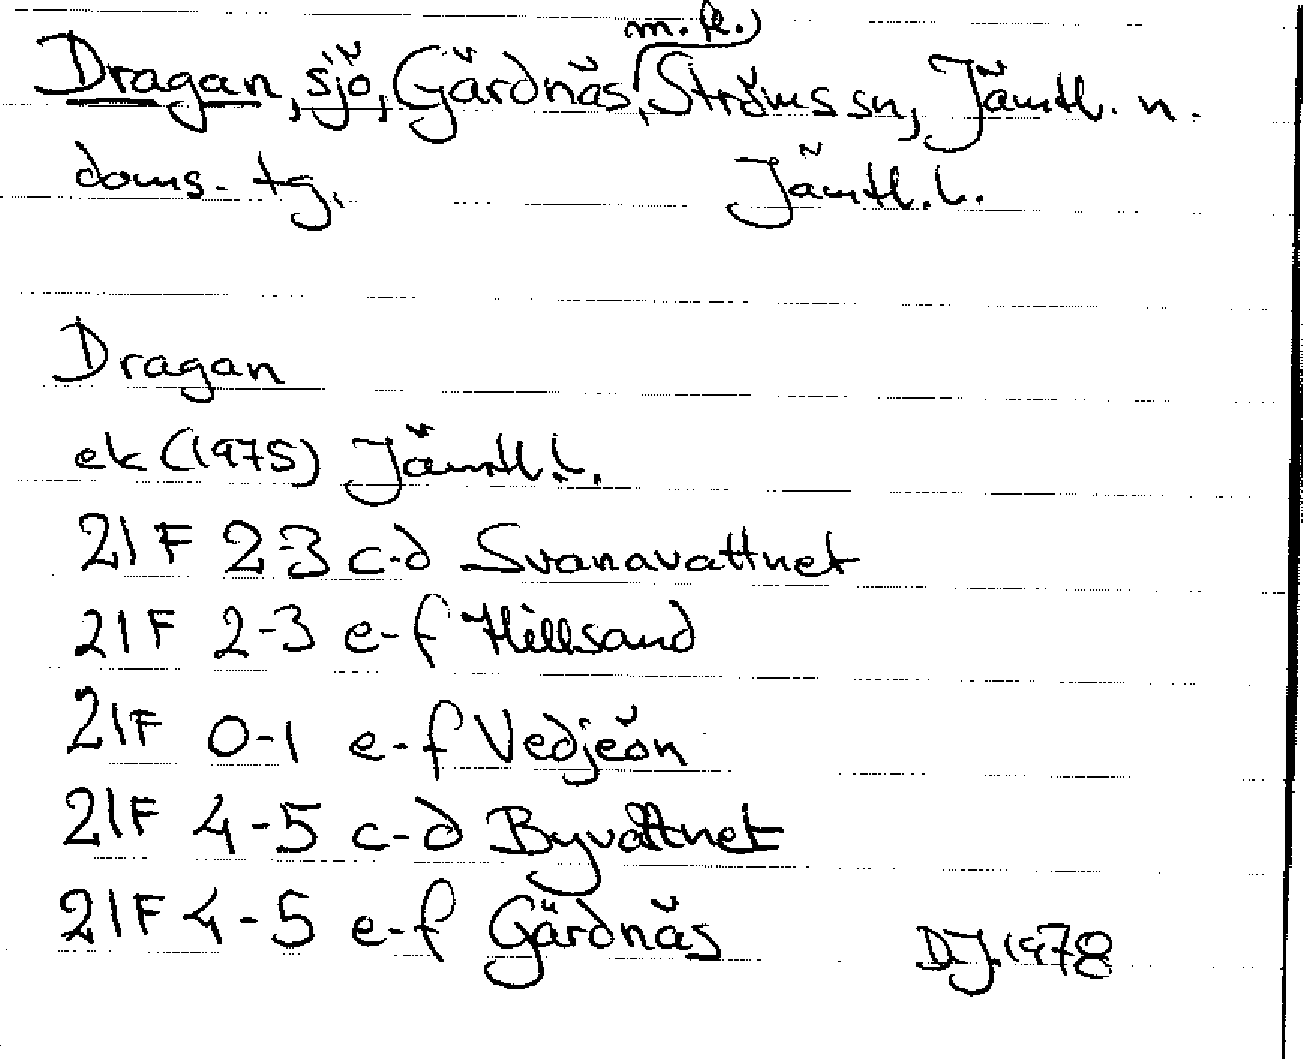 m.fl.
Dragan, sjö, Gärdnäs, Ströms sn, Jämtl. n.
doms. tg. Jämtl. l.
Dragan
ek (1975) Jämtl. l.
21F 2-3 c-d Svanavattnet
21F 2-3 e-f Hillsand
21F 0-1 e-f Vedjeön
21F 4-5 c-d Byvattnet
21F 4-5 e-f Gärdnäs
D.J. 1978